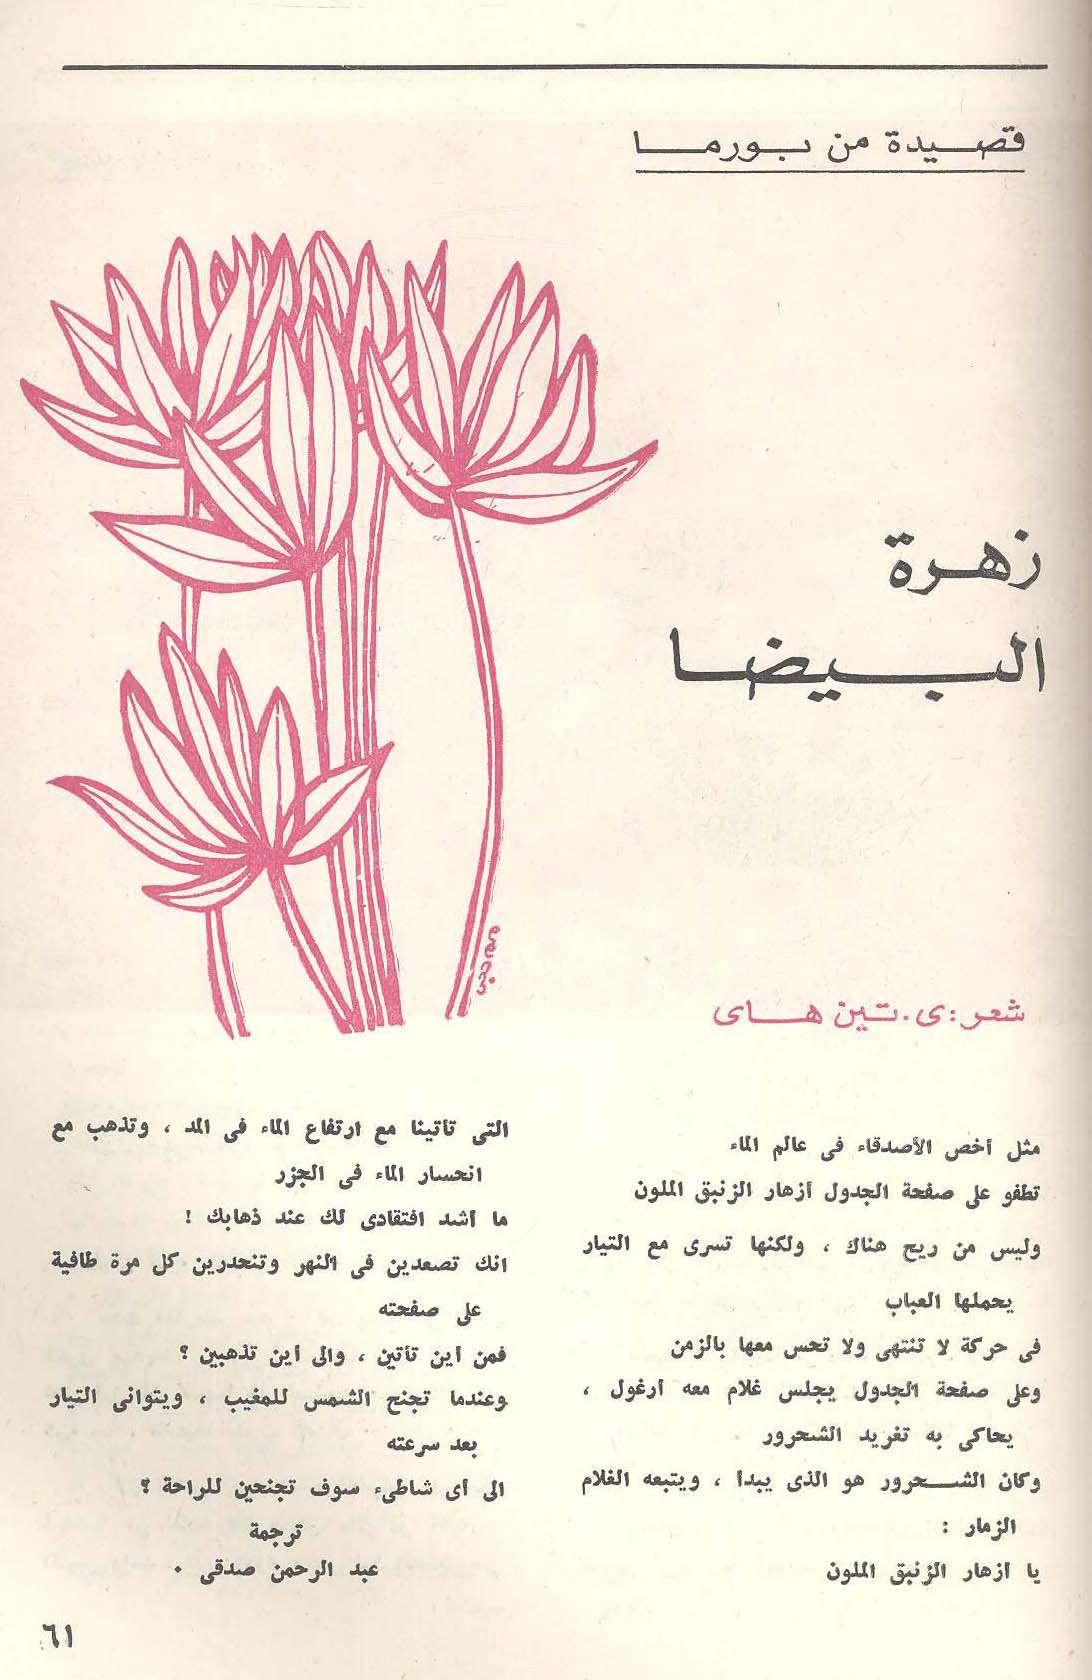 قصيدة من بورما
زهرة
البيضا
شعر : ى . تين هاى
مثل أخص الأصدقاء فى عالم الماء
تطفو على صفحة الجدول أزهار الزنبق الملون
وليس من ريح هناك ، ولكنها تسرى مع التيار
يحملها العباب
فى حركة لا تنتهى ولا تحس معها بالزمن
وعلى صفحة الجدول يجلس غلام معه أرغول ،
يحاكى به تغريد الشحرور .
وكان الشحرور هو الذى يبدأ ، ويتبعه الغلام
الزمار :
يا أزهار الزنبق الملون
التى تأتينا مع ارتفاع الماء فى المد ، وتذهب مع
انحسار الماء فى الجزر
ما أشد افتقادى لك عند ذهابك !
انك تصعدين فى النهر وتنحدرين كل مرة طافية
على صفحته
فمن أين تأتين ، والى أين تذهبين ؟
وعندما تجنح الشمس للمغيب ، ويتوانى التيار
بعد سرعته
الى أى شاطىء سوف تجنحين للراحة ؟
ترجمة
عبد الرحمن صدقى .
٦١